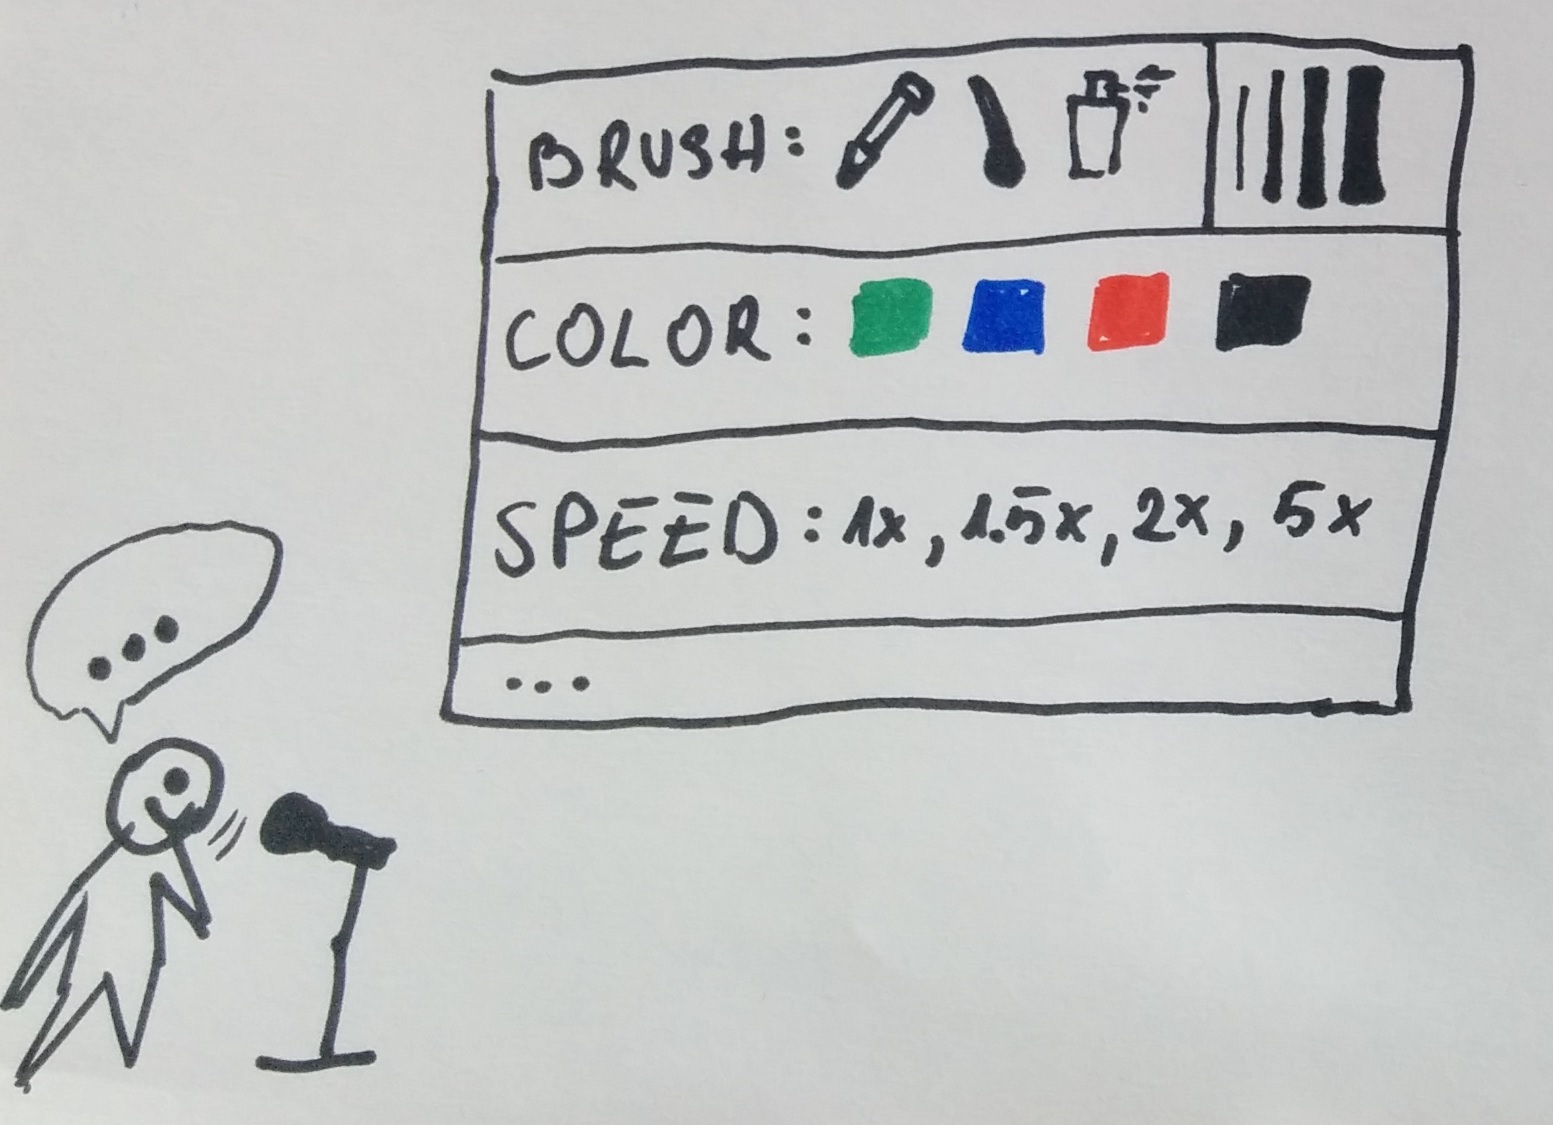 BRUSH:
COLOR:
SPEED: 1x, 1.5x, 2x, 5x
...
...